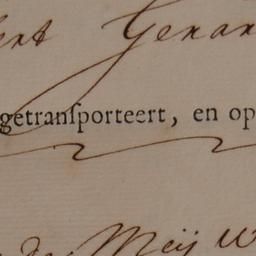 ent Genan
getranſporteert, en op
de Meij W